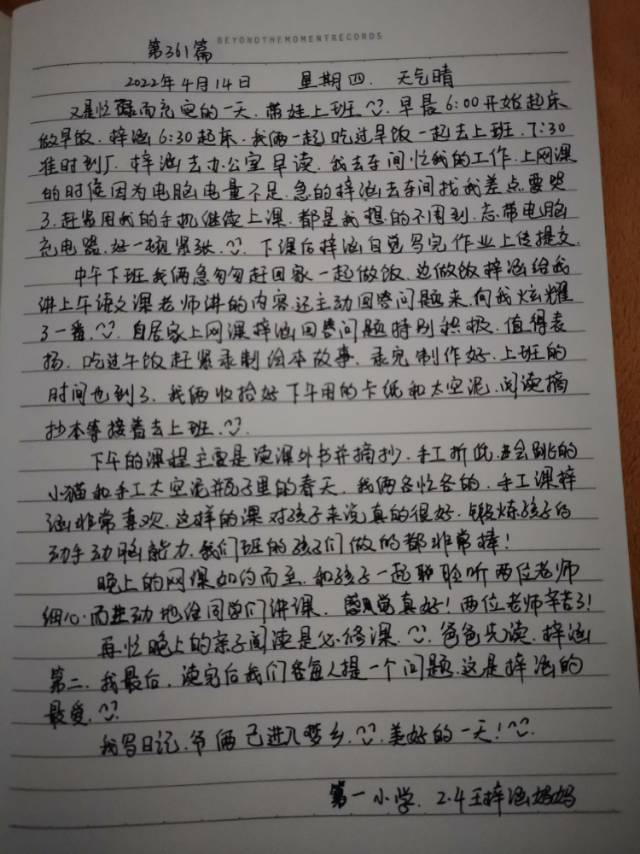 BEYONDTHEMOMENTRECORDS
第361篇
2022年4月14日 星期四. 天气晴
又是忙碌而充实的一天、带娃上班. 早晨6:00开始起床
做早饭. 梓涵6:30起床. 我俩一起吃过早饭一起去上班. 7:30
准时到厂. 梓涵去办公室早读. 我去车间忙我的工作. 上网课
的时候因为电脑电量不足. 急的梓涵去车间找我差点要哭
了. 赶紧用我的手机继续上课. 都是我想的不周到. 忘带电脑
充电器. 好一顿紧张. 下课后梓涵自觉写完作业上传提交.
中午下班我俩急匆匆赶回家一起做饭. 边做饭梓涵给我
讲上午语文课老师讲的内容. 还主动回答问题来. 向我炫耀
了一番. 自居家上网课梓涵回答问题特别积极. 值得表
扬. 吃过午饭赶紧录制绘本故事. 录完制作好. 上班的
时间也到了. 我俩收拾好下午用的卡纸和太空泥. 阅读摘
抄本等接着去上班.
下午的课程主要是读课外书并摘抄. 手工折纸. 会跳的
小猫和手工太空泥瓶子里的春天. 我俩各忙各的. 手工课梓
涵非常喜欢. 这样的课对孩子来说真的很好. 锻炼孩子的
动手动脑能力. 我们班的孩子们做的都非常棒!
晚上的网课如约而至. 和孩子一起聆听两位老师
细心而生动地给同学们讲课. 感觉真好! 两位老师辛苦了!
再忙晚上的亲子阅读是必修课. 爸爸先读. 梓涵
第二. 我最后. 读完后我们各每人提一个问题. 这是梓涵的
最爱.
我写日记. 爷俩已进入梦乡. 美好的一天!
第一小学. 2.4王梓涵妈妈